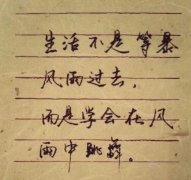 生活不是等暴
风雨过去,
而是学会在风
雨中跳舞。